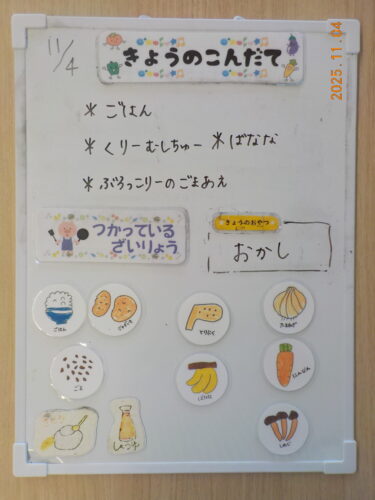 11/4
きょうのこんだて
2025.11.04
* ごはん
* くりーむしちゅー * ばなな
* ぶろっこりーのごまあえ
つかっている
ざいりょう
きょうのおやつ
おかし
ごはん
じゃがいも
とりにく
たまねぎ
ごま
ばなな
にんじん
しょうゆ
しめじ